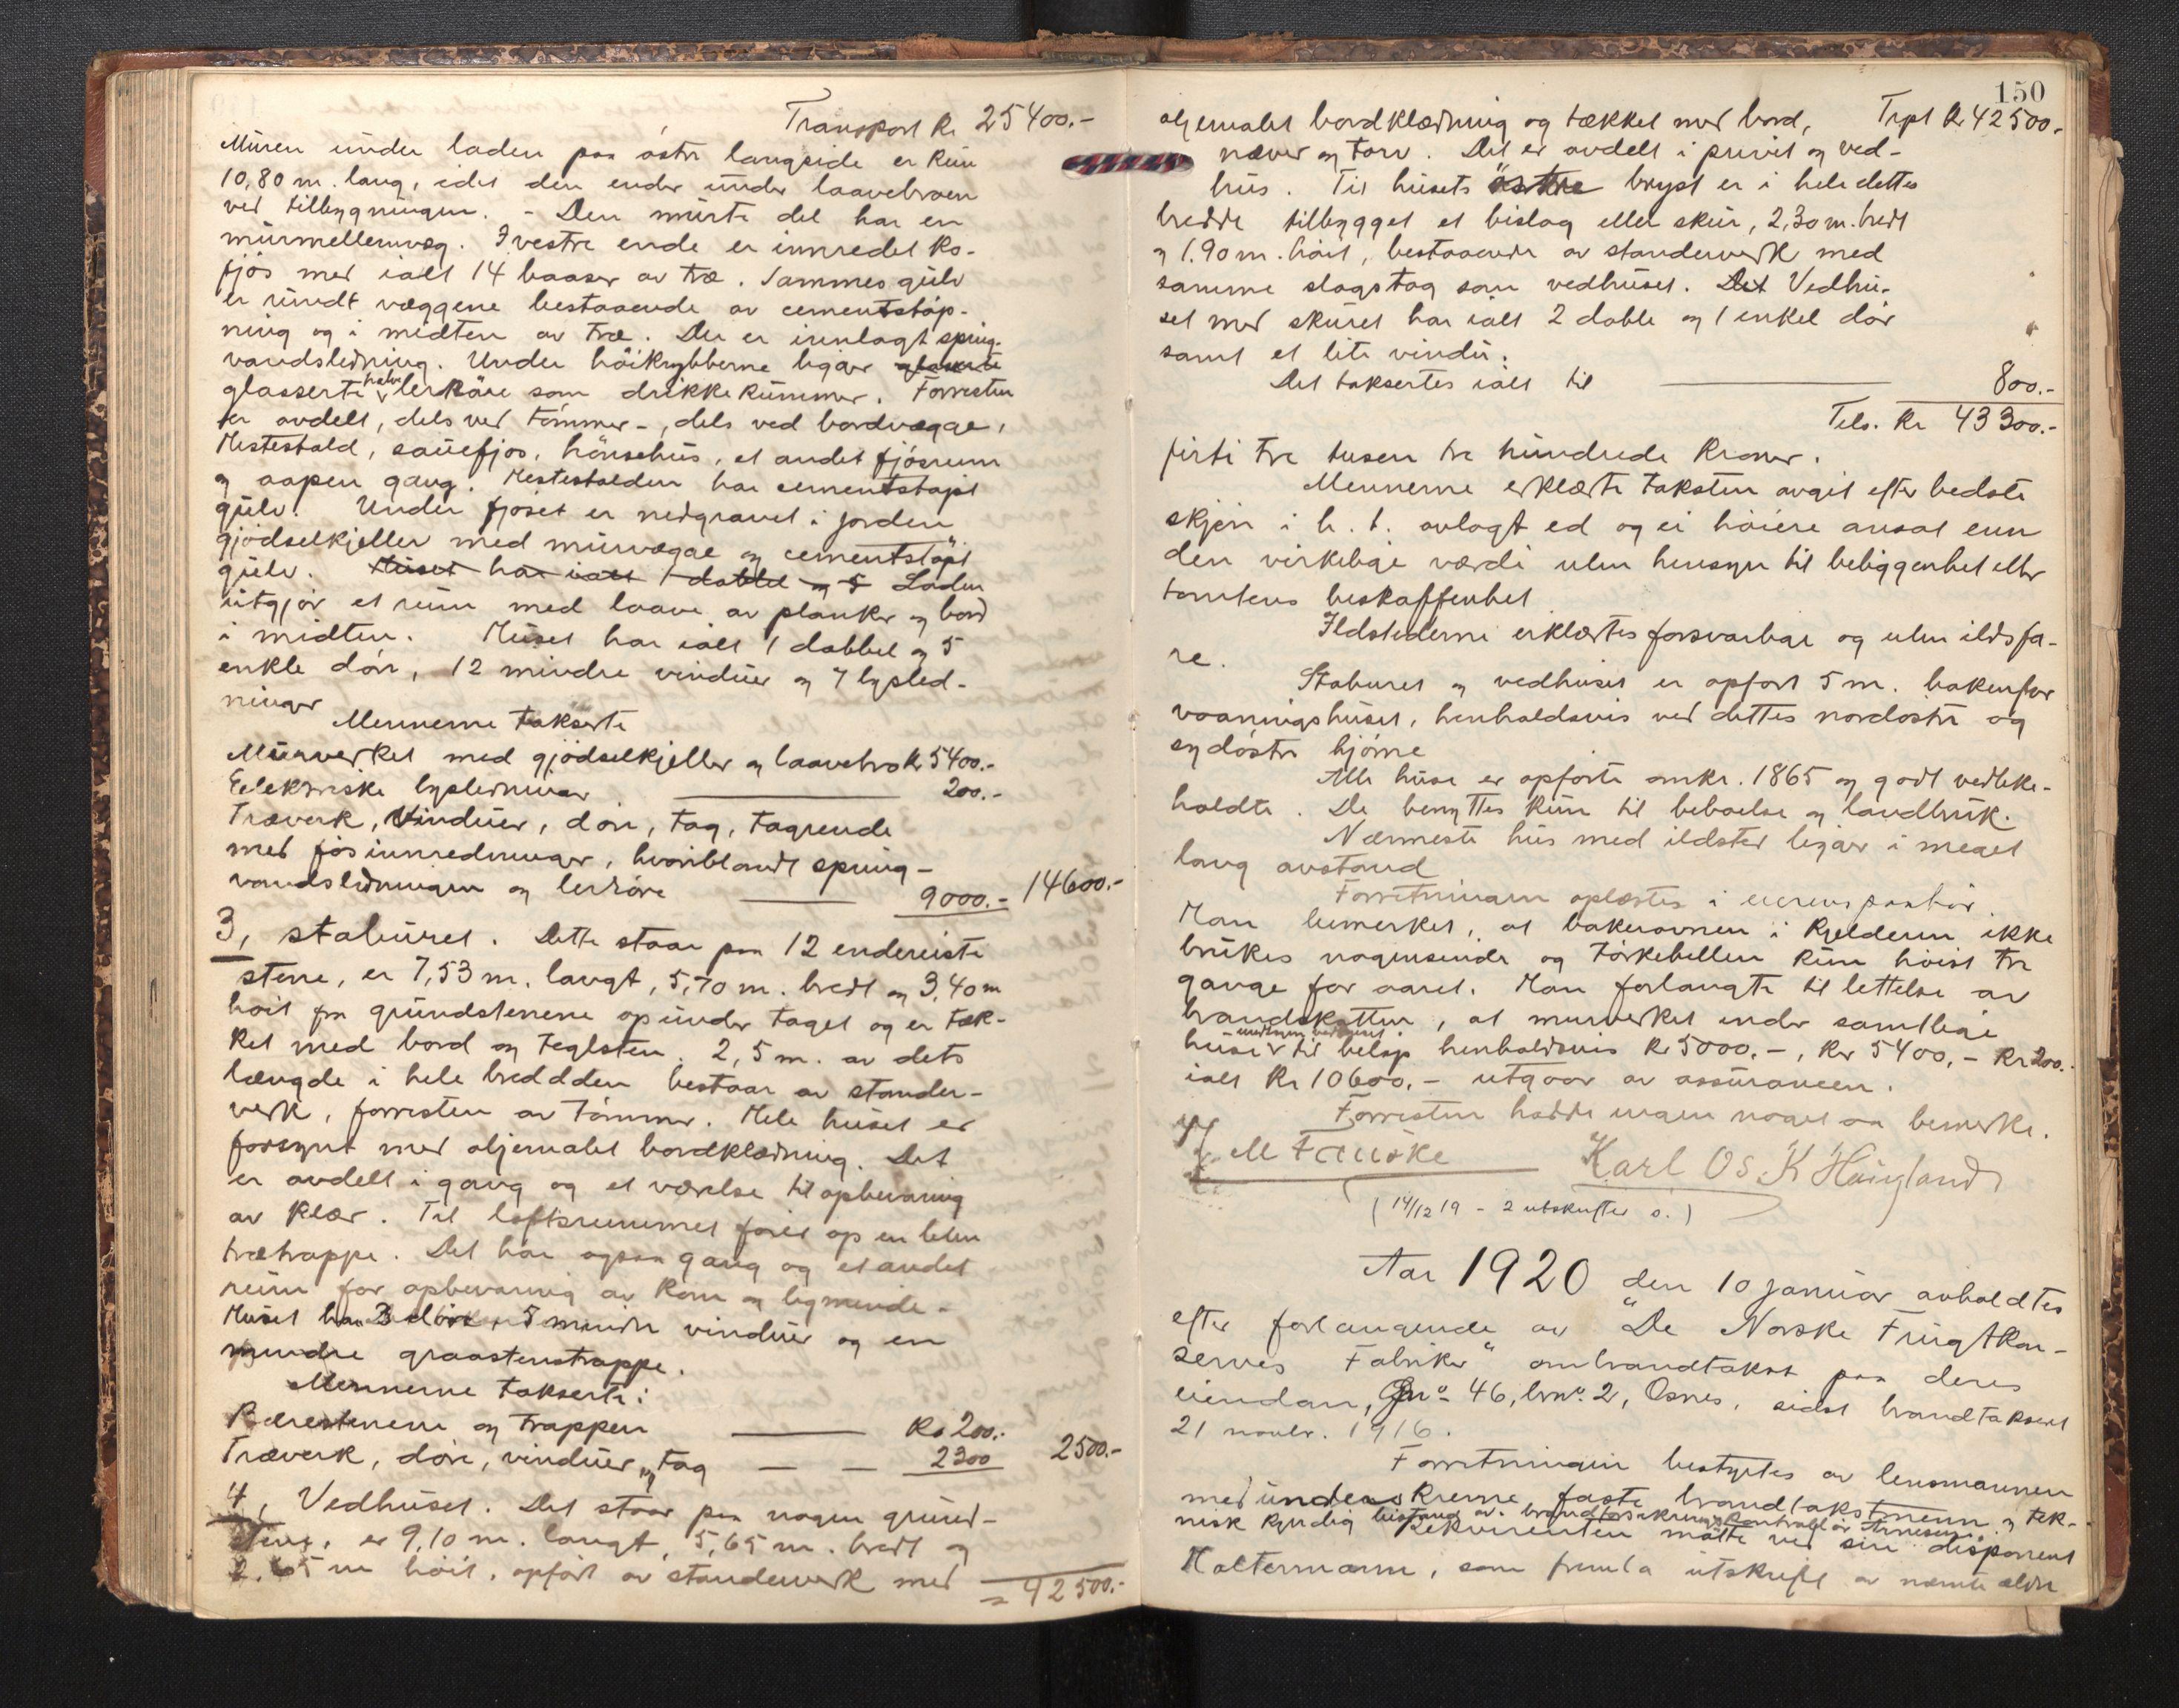 Transport Kr 25400.-
Muren under laden paa östre langside er kun
10,80 m. lang, idet den ender under laavebroen
ved tilbygningen. - Den murte del har en
murmellemvæg. I vestre ende er innredet ko-
fjös med ialt 14 baaser av træ. Sammes gulv
er rundt væggene bestaaende av cementstöp-
ning og i midten av træ. Der er innlagt spring-
vandsledning. Under höikrybberne ligger glaserte
glasserte halve lerköre som drikkekummer. Forresten
er avdelt, dels ved tömmer-, dels ved bordvægge,
Hestestald, sauefjös, hönsehus, et andet fjösrum
og aapen gang. Hestestalden har cementstöpt
gulv. Under fjöset er nedgravet i jorden
gjödselkjeller med murvægge og cementstöpt
gulv. Huset har ialt 1 dobbel og 5 Laden
utgjör et rum med laave av planker og bord
i midten. Huset har ialt 1 dobbel og 5
enkle dörer, 12 mindre vinduer og 7 lysled-
ninger
Mennerne takserte
Murverket med gjödselkjeller og laavebro Kr 5400.-
Elektriske lysledninger 200.-
Træverk, vinduer, döre, tag, tagrende
med fjösinnredninger, hvoriblandt spring-
vandsledningen og lerköre 9000.- 14600.-
3, stabüret. Dette staar paa 12 endereiste
stene, er 7,53 m. langt, 5,70 m. bredt og 3,40 m
höit fra grundstenene op under taget og er tæk-
ket med bord og teglsten. 2,5 m. av dets
længde i hele bredden bestaar av stander-
verk, forresten av tömmer. Hele huset er
forsynt med oljemalet bordklædning. Det
er avdelt i gang og et værelse til opbevaring
av klær. Til loftsrummet förer op en liten
trætrappe. Det har ogsaa gang og et andet
rum for opbevaring av korn og lignende.
Huset har 3 döre, 5 mindre vinduer og en
mindre graastenstrappe.
Mennerne takserte:
Bærestenene og trappen Kr 200.-
Træverk, döre, vinduer og tag 2300 2500.-
4, Vedhuset. Det staar paa nogen grund-
stene, er 9,10 m. langt, 5,65 m. bredt og
2.65 m höit, opfört av standerverk med
= 42500.-
150
oljemalet bordklædning og tækket med bord, Trpt Kr 42500.-
næver og torv. Det er avdelt i privet og ved-
hus. Til husets östre bryst er i hele dettes
bredde tilbygget et bislag eller skur, 2,30 m. bredt
og 1.90 m. höit, bestaaende av standerverk med
samme slags tag som vedhuset. Det Vedhu-
set med skuret har ialt 2 doble og 1 enkel dör
samt et lite vindu.
Det taksertes ialt til 800.-
Tels. Kr 43300.-
firti tre tusen tre hundrede Kroner.
Mennerne erklærte taksten avgit efter bedste
skjön i h. t. avlagt ed og ei höiere ansat enn
den virkelige værdi uten hensyn til beliggenhet eller
tomtens beskaffenhet
Ildstederne erklærtes forsvarlige og uten ildsfa-
re.
Staburet og vedhuset er opfört 5 m. bakenfor
vaaningshuset, henholdsvis ved dettes nordöstre og
sydöstre hjörne
Alle huse er opförte omkr. 1865 og godt vedlike-
holdte. De benyttes kun til beboelse og landbruk.
Nærmeste hus med ildsted ligger i meget
lang avstand
Forretningen oplæstes i eierens paahör.
Man bemerket, at bakerovnen i kjelderen ikke
brukes nogensinde og törkehellen kun höist tre
gange for aaret. Man forlangte til lettelse av
brandskatten, at murverket under samtlige
undtagen vedhuset.
huse til belöp henholdsvis Kr 5000.-, Kr 5400,- Kr 200.-
ialt Kr 10600.- utgaar av assurancen.
Forresten hadde ingen noget aa bemerke.
M Fauske Karl Os. K Haugland
(14/12 19 - 2 utskrifter s.)
Aar 1920 den 10 januar avholdtes
efter forlangende av "De Norske Frugtkon-
serves Fabriker" ombrandtakst paa deres
eiendom, Gno 46, brno 2, Osnes, sidst brandtaksert
21 novbr. 1916.
Forretningen bestyrtes av lensmannen
med underskrevne faste brandtakstmenn og tek-
nisk kyndig bistand av brandforsikringskontrollör Arnesen.
Rekvirenten mötte ved sin disponent
Holtermann, som fremla utskrift av nævnte ældre